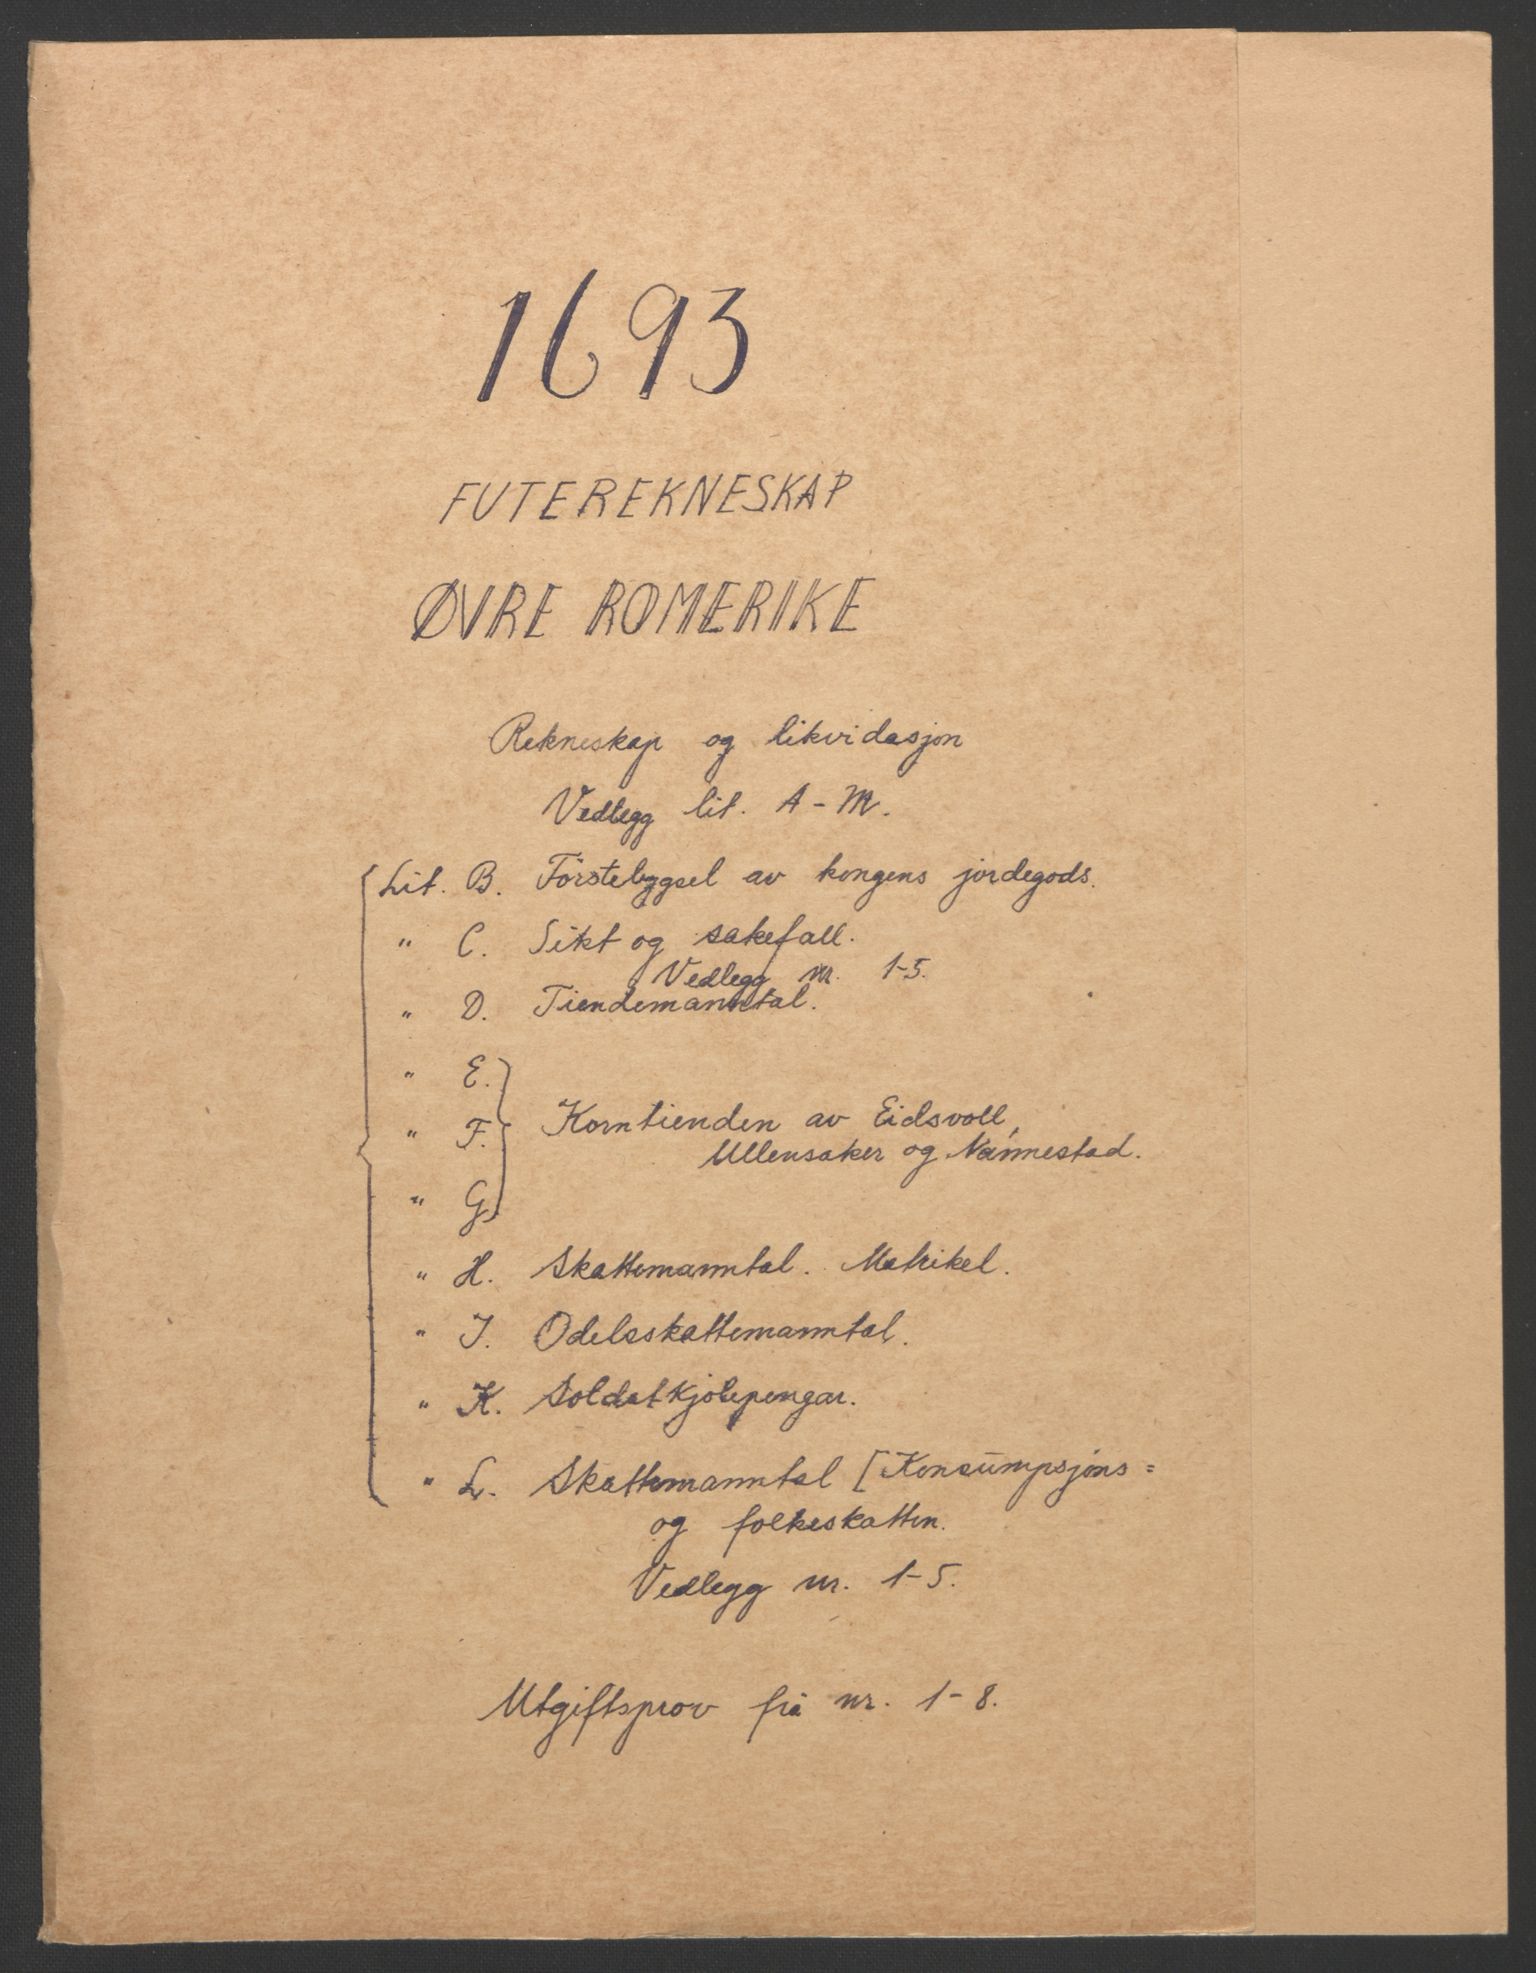 1693
FUTEREKNESKAP
ØVRE ROMERIKE
Rekneskap og likvidasjon
Vedlegg lit. A-M.
Lit. B. Förstebygsel av kongens jordegods.
" C. Sikt og sakefall.
Vedlegg nr. 1-5.
" D. Tiendemanntal.
" E.
" F. Korntienden av Eidsvoll,
Ullensaker og Nannestad.
" G.
" H. Skattemanntal. Matrikel.
" J. Odelsskattemanntal.
" K. Soldatkjolepengar.
" L. Skattemanntal [Konsumpsjons=
og folkeskatten.
Vedlegg nr. 1-5.
Utgiftsprov frå nr. 1-8.